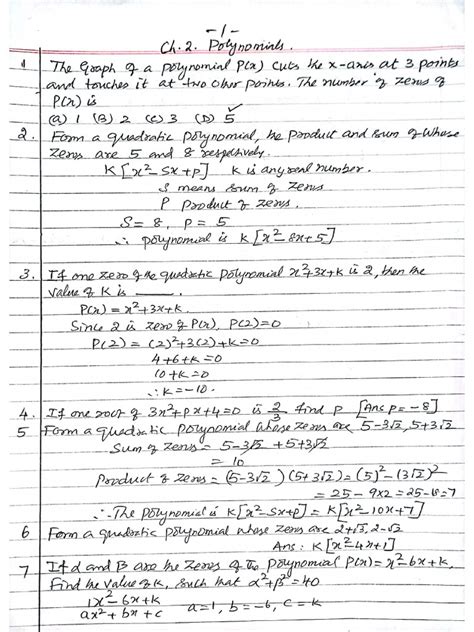 -1-
Ch.2. Polynomials.
1 The Graph of a polynomial P(x) cuts the x-axis at 3 points
and touches it at two other points. The number of zeros of
P(x) is
(a) 1 (B) 2 (c) 3 (D) 5 ✓
2. Form a quadratic polynomial, the product and sum of whose
zeros are 5 and 8 respectively.
K[x²-Sx+p] K is any real number.
S means sum of zeros
P product of zeros.
S = 8, P = 5
∴ polynomial is K[x²-8x+5]
3. If one zero of the quadratic polynomial x²+3x+k is 2, then the
value of K is ____.
P(x) = x²+3x+k.
Since 2 is zero of P(x), P(2)=0
P(2) = (2)²+3(2)+k=0
4+6+k=0
10+k=0
∴ k=-10.
4. If one root of 3x²+px+4=0 is 2/3 find p [Ans p=-8]
5 Form a quadratic polynomial whose zeros are 5-3√2, 5+3√2
Sum of zeros = 5-3√2 + 5+3√2
= 10
Product of zeros = (5-3√2)(5+3√2) = (5)²-(3√2)²
= 25-9x2 = 25-18=7
∴ The polynomial is K[x²-Sx+p] = K[x²-10x+7]
6 Form a quadratic polynomial whose zeros are 2+√3, 2-√3
Ans: K[x²-4x+1]
7 If α and β are the zeros of the polynomial P(x)=x²-6x+k,
Find the value of k, such that α²+β²=40
1x²-6x+k
ax²+bx+c a=1, b=-6, c=k